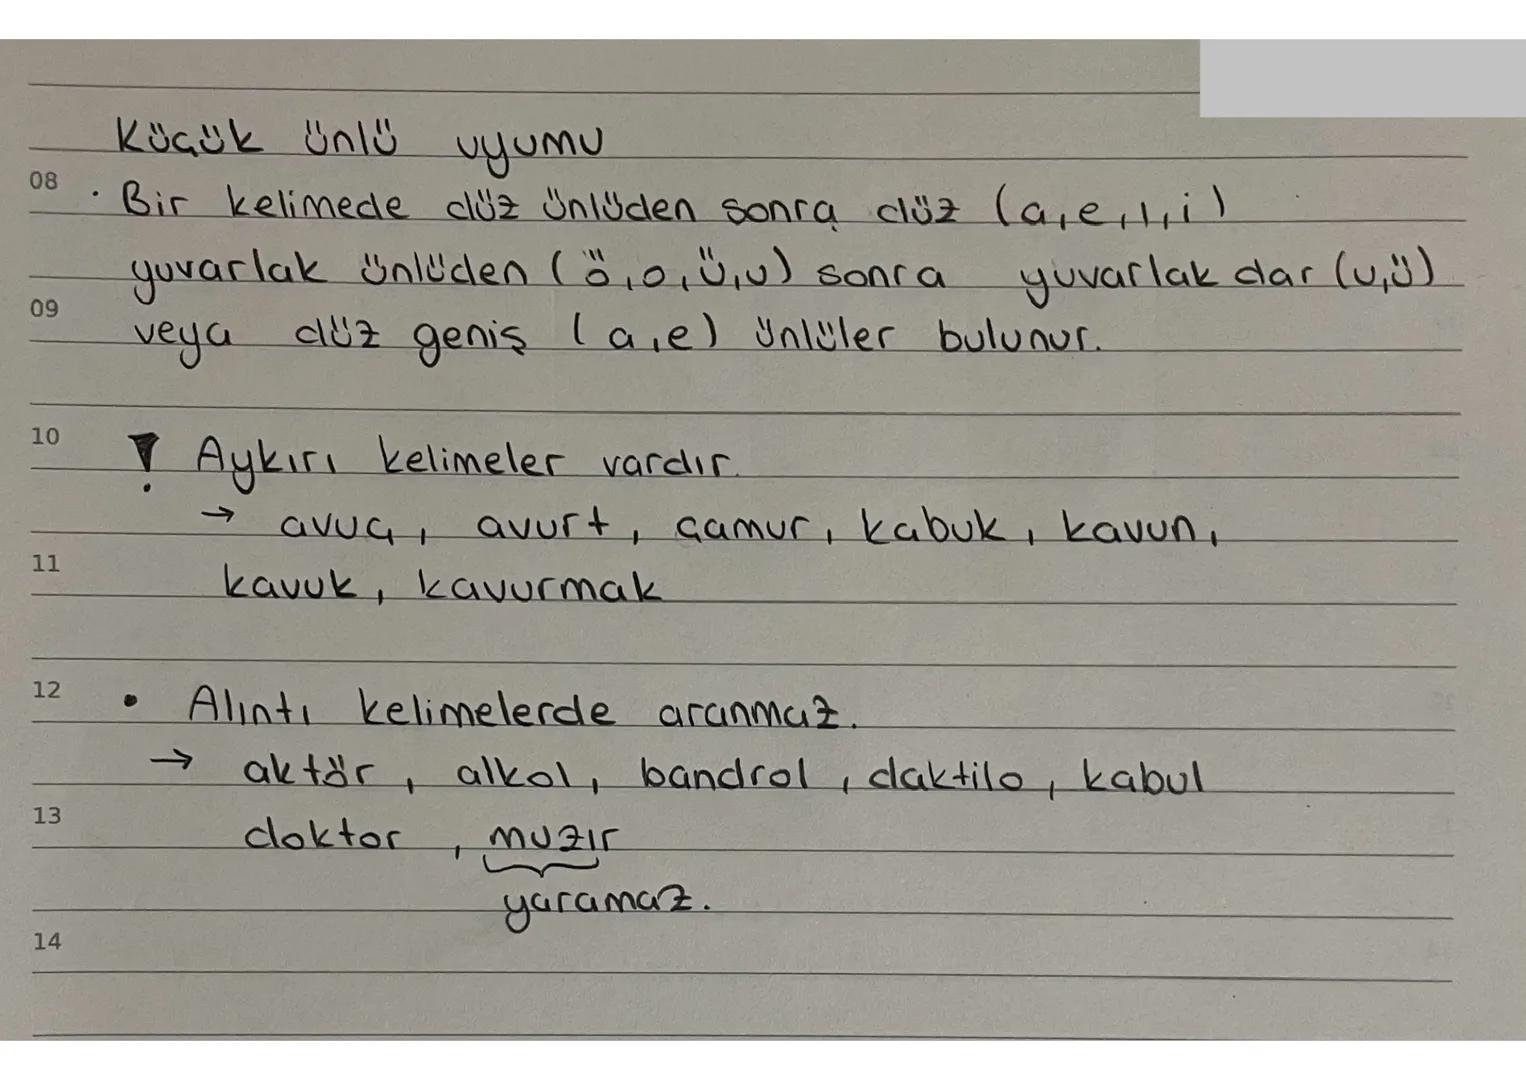 Küçük ünlü uyumu
08
· Bir kelimede düz ünlüden sonra düz (a,e,ı,i)
yuvarlak ünlüden (ö,o,ü,u) sonra yuvarlak dar (u,ü)
09
veya düz geniş (a,e) ünlüler bulunur.
10
! Aykırı kelimeler vardır.
→ avuç, avurt, çamur, kabuk, kavun,
11
kavuk, kavurmak
12
• Alıntı kelimelerde aranmaz.
→ aktör, alkol, bandrol, daktilo, kabul
13
doktor, muzır
yaramaz.
14